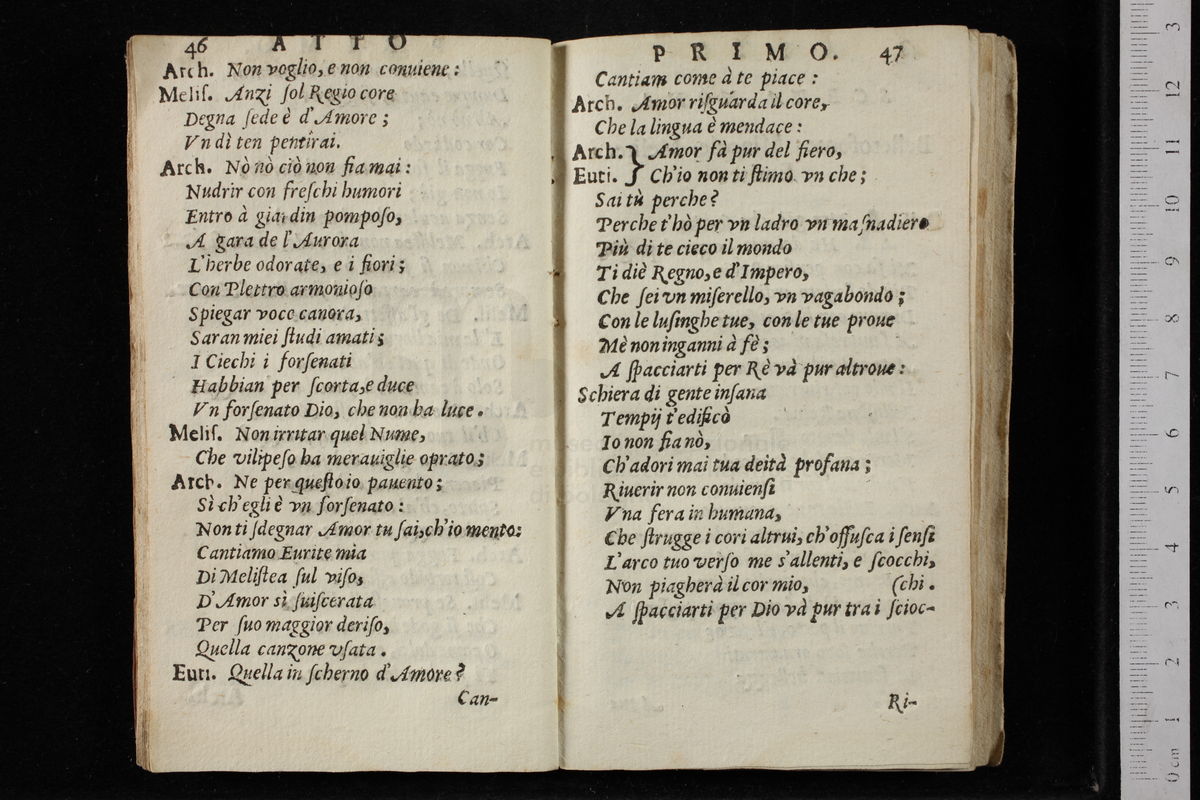 46 ATTO
Arch. Non voglio, e non conuiene :
Melis. Anzi ſol Regio core
Degna ſede è d'Amore ;
Vn dì ten pentirai.
Arch. Nò nò ciò non fia mai :
Nudrir con freſchi humori
Entro à giardin pompoſo,
A gara de l'Aurora
L'herbe odorate, e i fiori ;
Con Plettro armonioſo
Spiegar voce canora,
Saran miei ſtudi amati ;
I Ciechi i forſenati
Habbian per ſcorta, e duce
Vn forſenato Dio, che non ha luce.
Meliſ. Non irritar quel Nume,
Che vilipeſo ha merauiglie oprato ;
Arch. Ne per queſto io pauento ;
Sì ch'egli è vn forſenato :
Non ti ſdegnar Amor tu ſai, ch'io mento:
Cantiamo Eurite mia
Di Meliſtea ſul viſo,
D'Amor sì ſuiſcerata
Per ſuo maggior deriſo,
Quella canzone vſata.
Euri. Quella in ſcherno d'Amore ?
Can-
PRIMO. 47
Cantiam come à te piace :
Arch. Amor riſguarda il core,
Che la lingua è mendace :
Arch. } Amor fà pur del fiero,
Euri. } Ch'io non ti ſtimo vn che ;
Sai tù perche ?
Perche t'hò per vn ladro vn maſnadiero
Più di te cieco il mondo
Ti diè Regno, e d'Impero,
Che ſei vn miſerello, vn vagabondo ;
Con le luſinghe tue, con le tue proue
Mè non inganni à fè ;
A ſpacciarti per Rè và pur altroue :
Schiera di gente inſana
Tempij t'edificò
Io non fia nò,
Ch'adori mai tua deità profana ;
Riuerir non conuienſi
Vna fera in humana,
Che ſtrugge i cori altrui, ch'offuſca i ſenſi
L'arco tuo verſo me s'allenti, e ſcocchi,
Non piagherà il cor mio, (chi.
A ſpacciarti per Dio và pur tra i ſcioc-
Ri-
0 cm 1 2 3 4 5 6 7 8 9 10 11 12 3